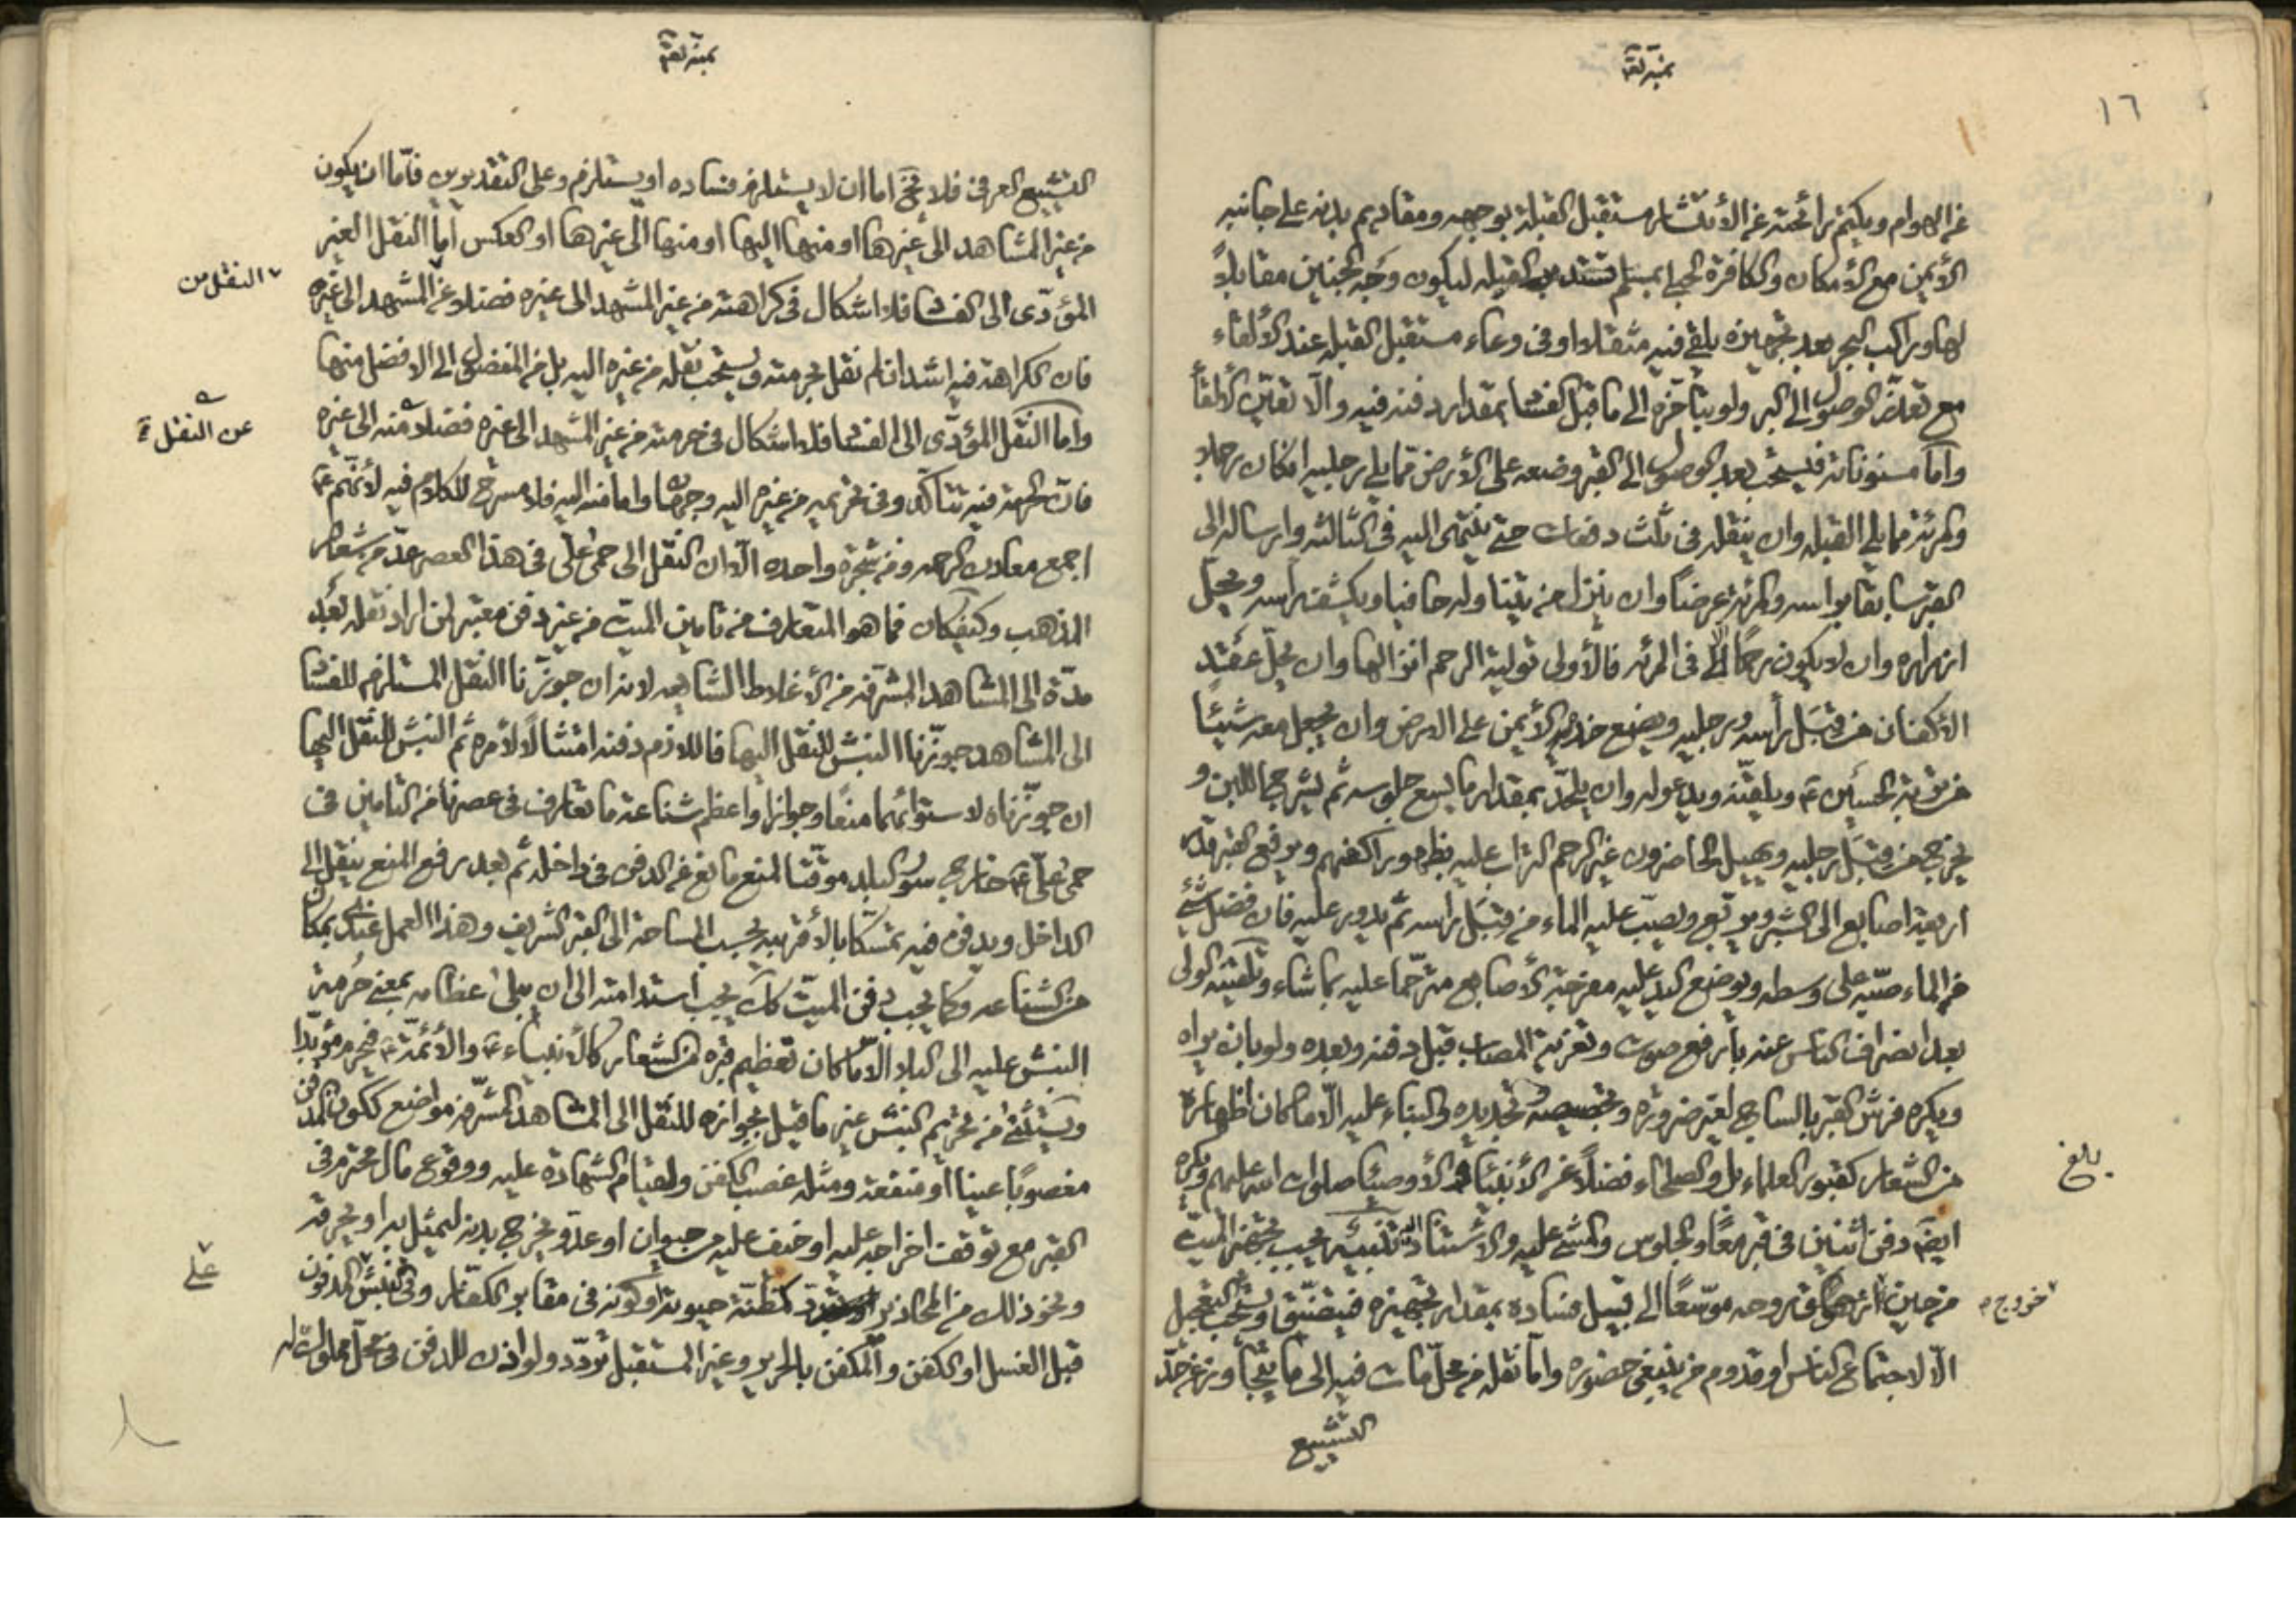 ١٦
عن الهوام ويكتم رائحته عن الأنتشار مستقبل القبلة بوجهه ومقاديم بدنه على جانبه
الأيمن مع الأمكان والكافرة الحبلى بمسلم تستدبر القبله ليكون وجه الجنين مقابلاً
لها وراكب البحر بعد تجهيزه يلقى فيه مثقلا او في وعاء مستقبل القبله عند الألقاء
مع تعذر الوصول الى البر ولو بتأخره الى ما قبل الفساد بمقدار دفنه فيه والّا تعيّن لا لقاً
واما مسنوناته فيستحب بعد الوصول الى القبر وضعه على الأرض مما يلي رجليه انكان رجلا
والمرئة مما يلي القبله وان ينقله في ثلث دفعات حتى ينتهى اليه في الثالثه وارساله الى
القبر سابقا براسه والمرئة عرضًا وان ينزل من يتناوله حافيا ويكشف راسه ويحل
ازراره وان لا يكون رحمًا الّا في المرئه فالأولى تولية الرحم انزالها وان يحلّ عقد
الأكفان من قبَل رأسه ورجليه ويضع خده الأيمن على الارض وان يجعل معه شيئًا
من تربة الحسين ع ويلقّنه ويدعو له وان يلحّد بمقدار ما يسع جلوسه ثم يشرج اللبن و
يخرج من قبَل رجليه ويهيل الحاضرون غير الرحم التراب عليه بظهور اكفهم ويرفع القبر قدر
اربعة اصابع الى الشبر ويربّع ويصبّ عليه الماء من قبَل راسه ثم يدور عليه فان فضل شئ
من الماء صبّه على وسطه ويوضع اليد عليه مفرجة الأصابع مترحّما عليه بما شاء وتلقينه الولى
بعد انصراف الناس عنه بأرفع صوت وتعزية المصاب قبل دفنه وبعده ولو بان يراه
ويكره فرش القبر بالساج لغير ضرورة وتجصيصه وتجديده والبناء عليه الّا ما كان اظهاره
من الشعار كقبور العلماء بل والصلحاء فضلاً عن الأنبياء والأوصياء صلوات الله عليهم ويكره
بلغ
ايضًا دفن اثنين في قبر معًا والجلوس والمشي عليه والاستناد اليه تنبيه يجب تجهيز الميت
من حين ازهاق روحه موسّعًا الى قبيل فساده بمقدار تجهيزه فيتضيّق ويستحب التعجيل
خروج
الّا لاجتماع الناس او قدوم من ينبغى حضوره واما نقله من محلّ مات فيه الى ما يتجاوز عن حدّ
التشييع
التشييع العرفى فلا يخ اما ان لا يستلزم فساده او يستلزم وعلى التقديرين فأمّا ان يكون
من غير المشاهد الى غيرها او منها اليها او منها الى غيرها او العكس اما النقل الغير
المؤدّى الى الفساد فلا اشكال في كراهته من غير المشهد الى غيره فضلا عن المشهد الى غيره
النقل من
فان الكراهة فيه اشد ان لم نقل بحرمته ويستحب نقله من غيره اليه بل من المفضول الى الافضل منها
واما النقل المؤدّى الى الفساد فلا اشكال في حرمته من غير المشهد الى غيره فضلا منه الى غيره
عن النقل
فان الحرمة فيه تتأكد وفى تحريمه من غيره اليه وجهان واما منه اليه فلا مسرح للكلام فيه لأنهم ع
اجمع معادن الرحمه ومن شجرة واحده الّا ان النقل الى حمى علّى في هذا العصر عدّ من شعار
المذهب وكيفكان فما هو المتعارف من تامين الميت من غير دفن معتبر لمن اراد نقله بعد
مدّة الى المشاهد المشرّفه من الأغلاط الشايعه لانه ان جوّزنا النقل المستلزم للفساد
الى المشاهد جوّزنا النبش للنقل اليها فاللازم دفنه امتثالًا لأمره ثم النبش للنقل اليها
ان جوّزناه لاستوائهما منعًا وجوازا واعظم شناعة ما تعارف في عصرنا من التامين في
حمى علّى ع خارج سور البلد موقتا لمنع مانع عن الدفن في داخله ثم بعد رفع المنع ينقل الى
الداخل ويدفن فيه تمسّكا بالأقربيه بحسب المساحة الى القبر الشريف وهذا العمل عندى بمكان
من الشناعه وكما يجب دفن الميّت كك يجب استدامته الى ان يبلى عظامه بمعنى حُرمة
النبش عليه الى البلاء الّا ما كان تعظيم قبره من الشعار كالأنبياء ع والأئمّة ع فيحرم مؤبدًا
ويستثنى من تحريم النبش غير ما قيل بجوازه للنقل الى المشاهد المشرّفه مواضع ككون المدفن
مغصوبًا عينا او منفعة ومثله غصب الكفن ولقيام الشهادة عليه ووقوع مال محترم في
القبر مع توقف اخراجه عليه او خيف عليه من حيوان او عدو يخرج بدنه ليمثل به او يحرقه
ونحو ذلك من المحاذير كمظنّة حيوته او كونه في مقابر الكفّار وفى نبش المدفون
على
قبل الغسل او الكفن والمكفن بالحرير وغير المستقبل تردّد ولو اذن للدفن في محل مملوك له